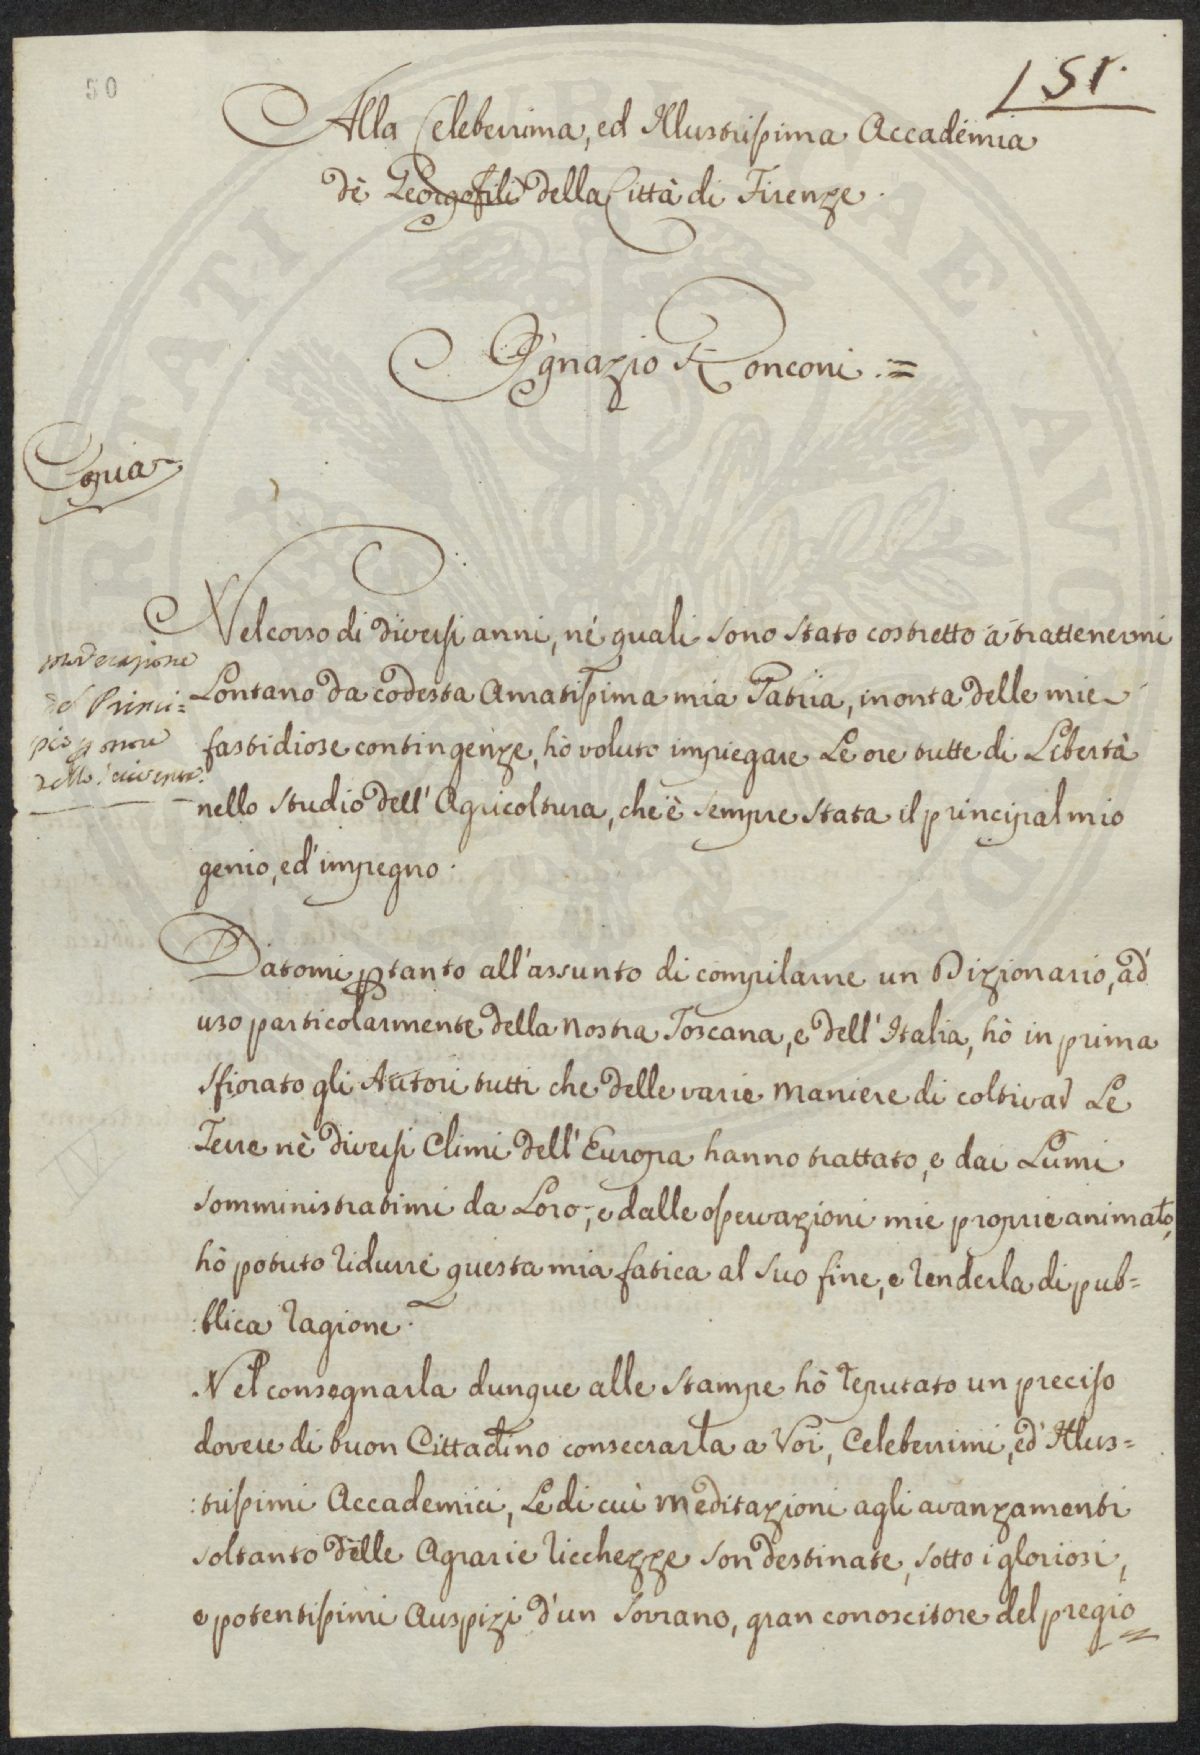 50
151.
Alla Celeberrima, ed Illustrissima Accadémia
dè Georgofili della Città di Firenze.
Ignazio Ronconi . =
Copia
Nel corso di diversi anni, né quali sono stato costretto a trattenermi
Lontano da codesta Amatissima mia Patria, in onta delle mie
fastidiose contingenze, hò voluto impiegare Le ore tutte di Libertà
nello studio dell' Agricoltura, che è sempre stata il principal mio
genio, ed' impegno.
del Princi=
Datomi ptanto all' assunto di compilarne un Dizionario, ad
uso particolarmente della nostra Toscana, e dell' Italia, hò in prima
sfiorato gli Autori tutti che delle varie maniere di coltivar Le
Terre nè diversi Climi dell' Europa hanno trattato, e dai Lumi
somministratimi da Loro, e dalle osservazioni mie proprie animato,
hò potuto ridurre questa mia fatica al suo fine, e renderla di pub=
:blica ragione.
Nel consegnarla dunque alle stampe hò reputato un preciso
dovere di buon Cittadino consecrarla a Voi, Celeberrimi, ed Illus=
:trissimi Accademici, Le di cui meditazioni agli avanzamenti
soltanto délle Agrarie ricchezze son destinate, sotto i gloriosi,
e potentissimi Auspizi d'un Sovrano, gran conoscitore del pregio
RITATI PUBLICAE AVG